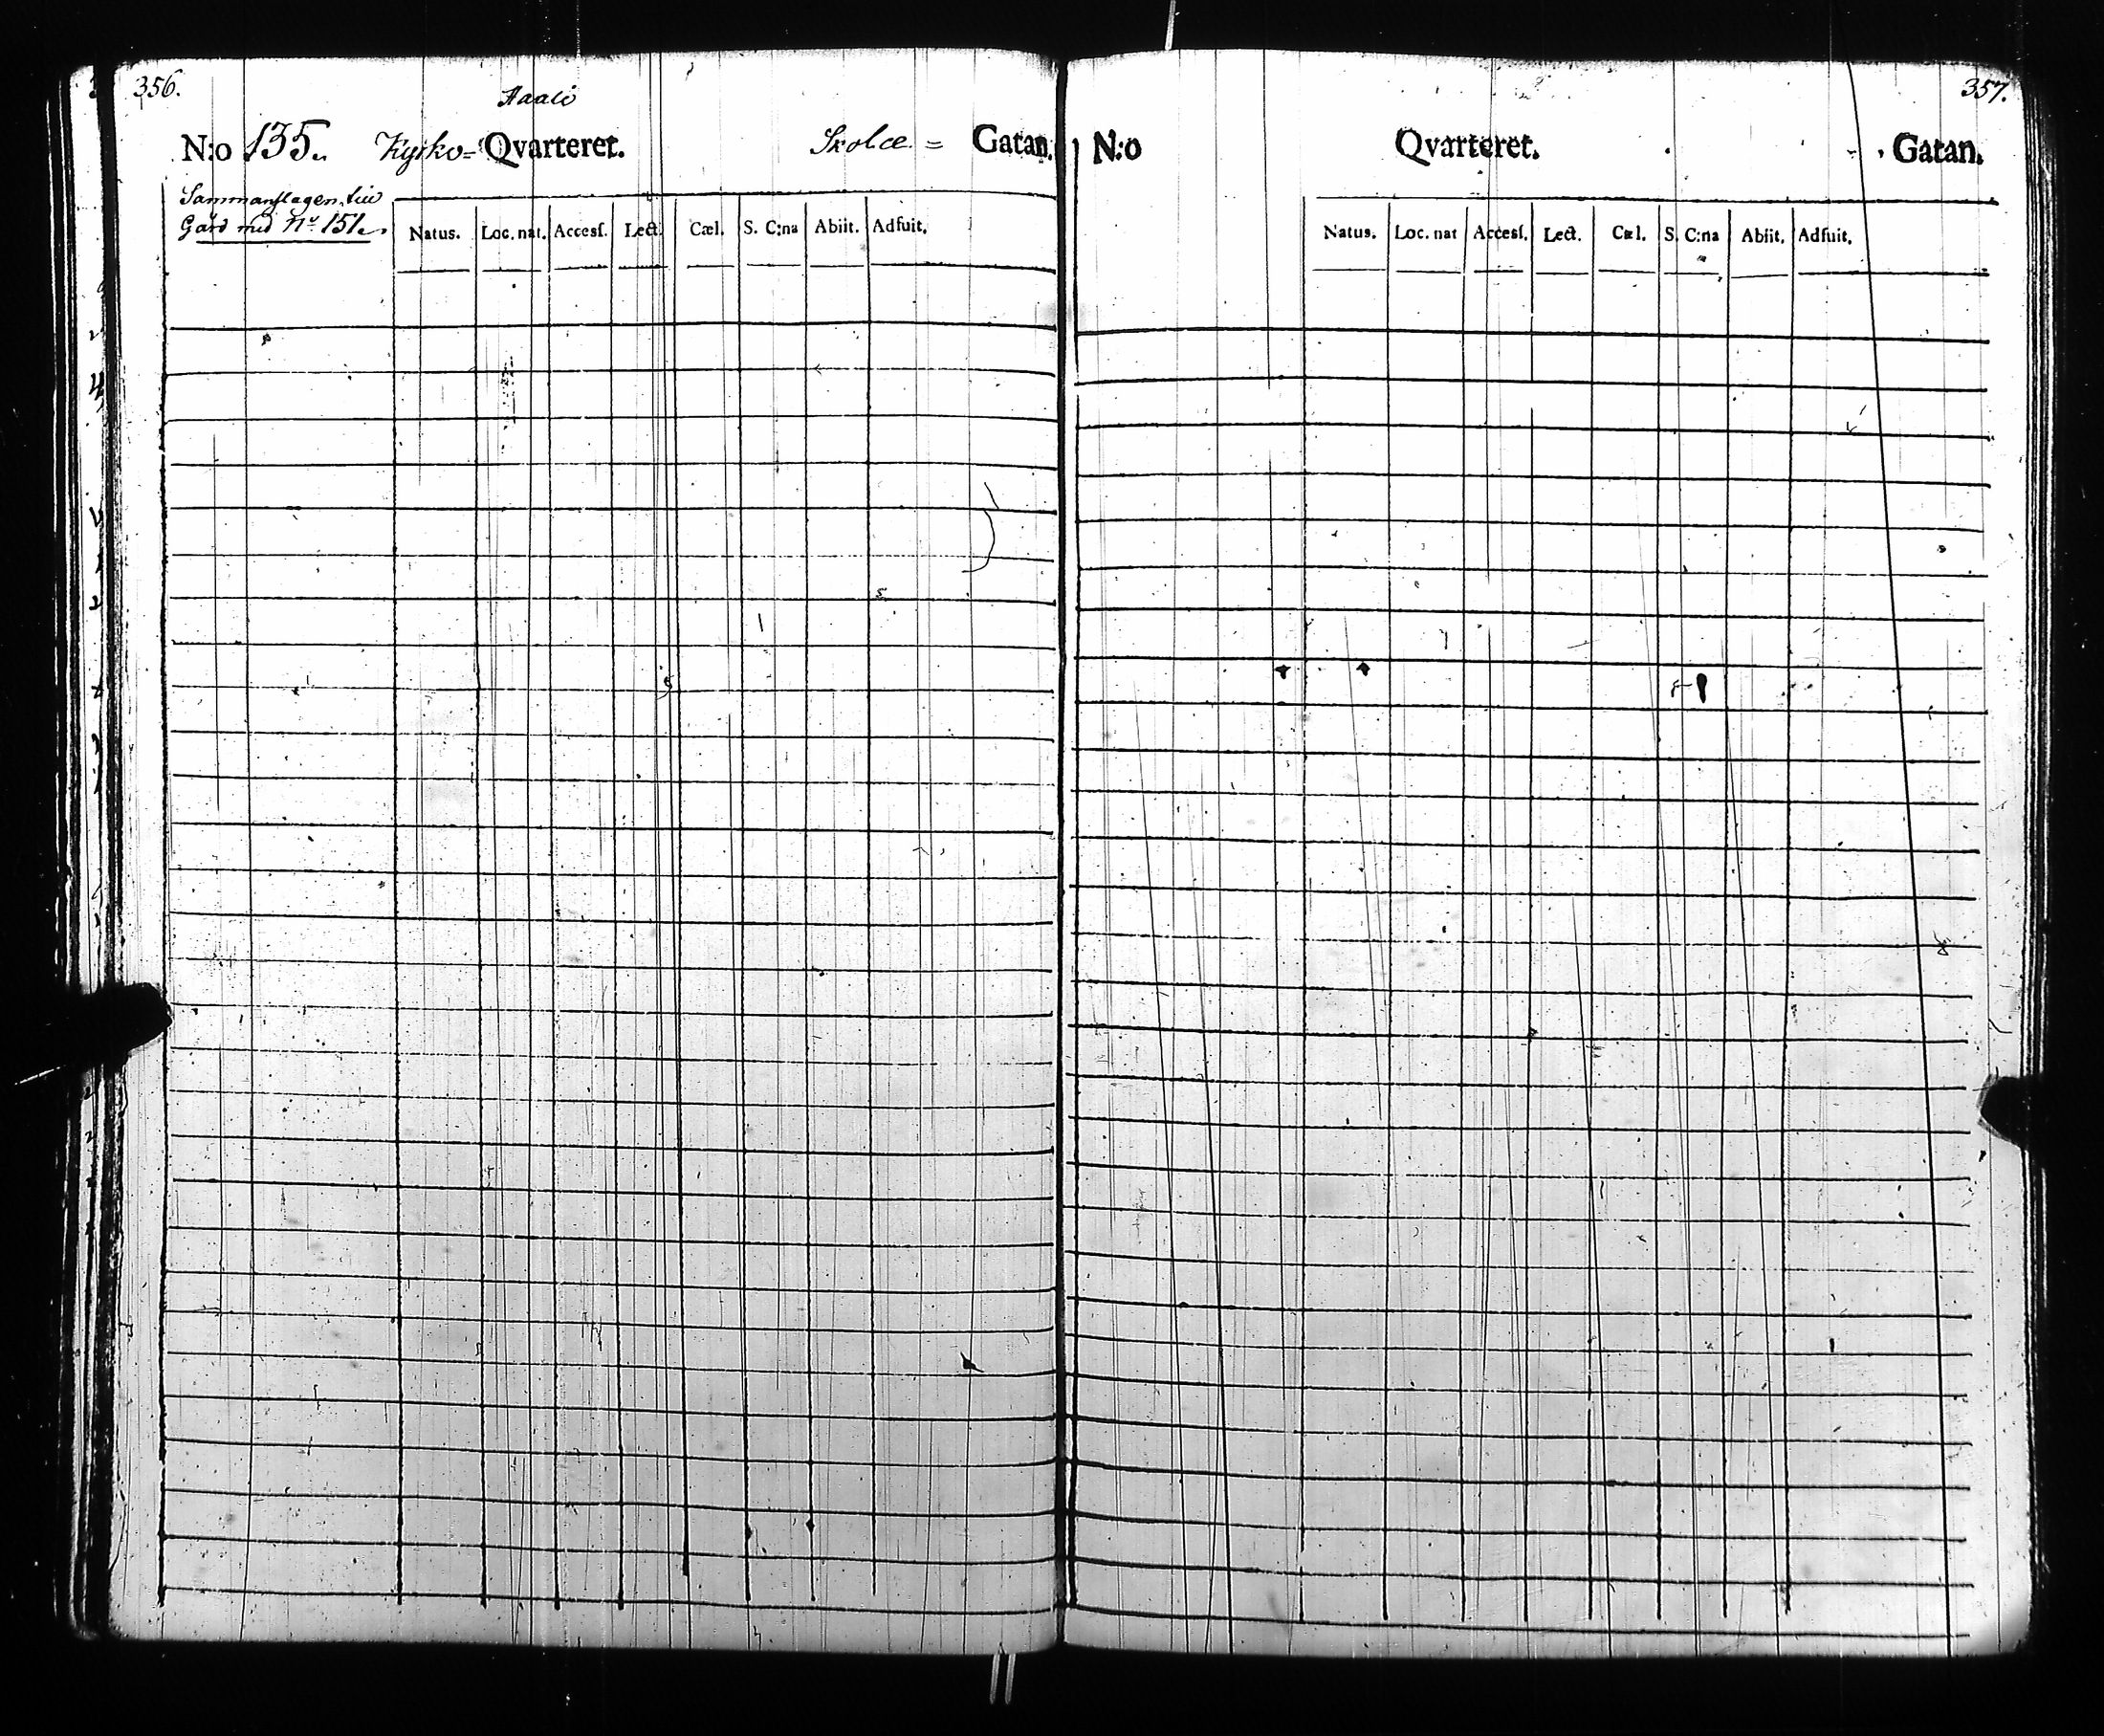 356.
N:o 135. Kyrko= Qvarteret. Skolæ = Gatan.
Sammanslagen til
Gård med No 151.
Natus. Loc. nat. Accesf. Lect. Cæl. S. C:na Abiit. Adfuit.
357.
N:o Qvarteret. Gatan.
Natus. Loc. nat Accesf. Lect. Cæl. S. C:na Abiit. Adfuit.